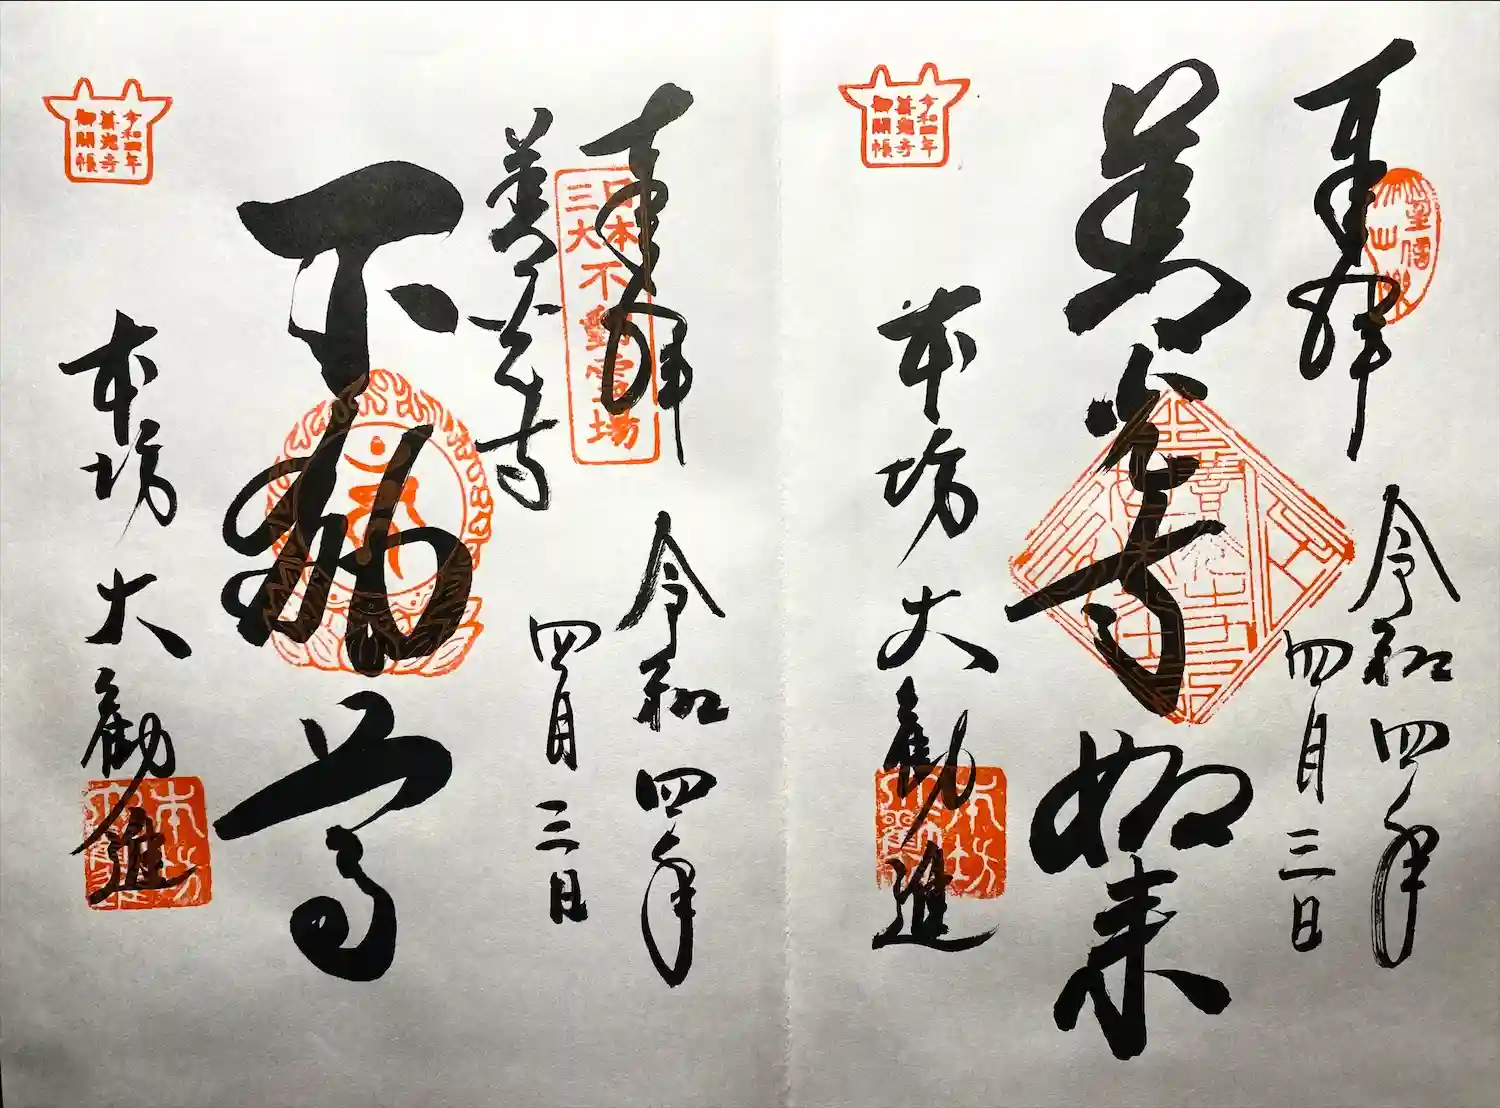 奉拝
令和四年
四月三日
善光寺如来
本坊大勧進
令和四年
善光寺
御開帳
本坊
奉拝
令和四年
日本
三大
不動霊場
善光寺
四月三日
不動尊
本坊大勧進
令和四年
善光寺
御開帳
本坊